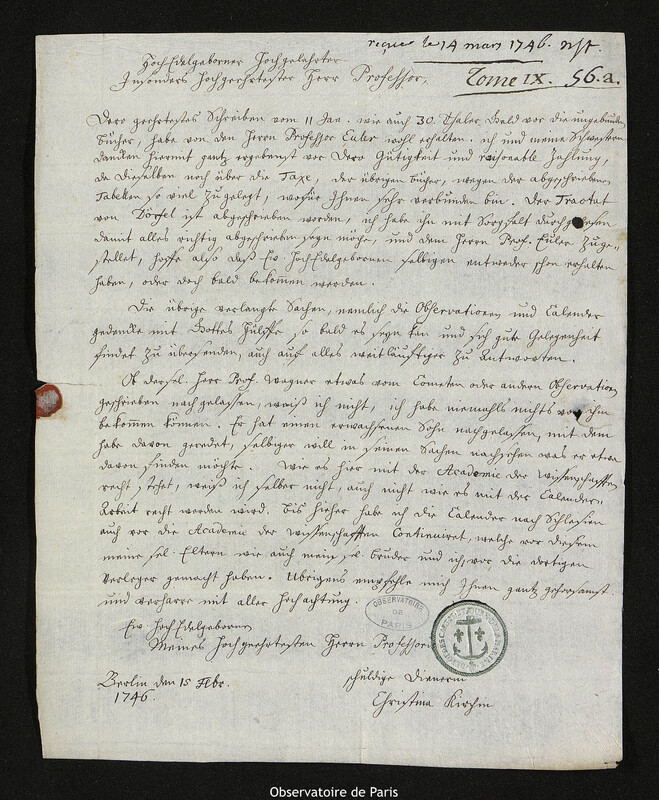 reçue le 14 mars 1746. nst.
Tome IX. 56.a.
HochEdelgeborner Hochgelahrter
Insonders Hochgeehrtester Herr Professor,
Dero geehrtestes Schreiben vom 11 Jan. wie auch 30 Thaler Geld vor die ungebunden
Bücher, habe von den Herrn Professor Euler wohl erhalten. ich und meine Schwestern
dancken hiermit gantz ergebenst vor Dero Gütigkeit und raisonable Zahlung,
da Dieselben noch über die Taxe, der übrigen Bücher, wegen der abgeschriebenen
Tabellen so viel zugelegt, wofür Ihnen sehr verbunden bin. Der Tractat
von Dörfel ist abgeschrieben worden, ich habe ihn mit Sorgfalt durchgelesen
damit alles richtig abgeschrieben seyn möge, und dem Herrn Prof. Euler zuge-
stellet, hoffe also daß Ew. HochEdelgebornen selbigen entweder schon erhalten
haben, oder doch bald bekommen werden.
Die übrige verlangte Sachen, nemlich die Observationen und Calender
gedencke mit Gottes Hülffe so bald es seyn kan und sich gute Gelegenheit
findet zu übersenden, auch auf alles weitläuftiger zu antworten.
Ob der sel. Herr Prof. Wagner etwas vom Cometen oder andern Observationen
geschrieben nachgelassen, weiß ich nicht, ich habe niemahls nichts von ihm
bekommen können. Er hat einen erwachsenen Sohn nachgelassen, mit dem
habe davon geredet, selbiger will in seinen Sachen nachsehen was er etwa
davon finden möchte. Wie es hier mit der Academie der Wissenschafften
recht stehet, weiß ich selber nicht, auch nicht wie es mit der Calender-
Arbeit recht werden wird. Bis hieher habe ich die Calender nach Schlesien
auch vor die Academie der Wissenschafften Continuiret, welche vor diesem
meine sel. Eltern wie auch mein sel. Bruder und ich, vor die dortigen
Verleger gemacht haben. Übrigens empfehle mich Ihnen gantz gehorsamst
und verharre mit aller Hochachtung.
Ew. HochEdelgebornen
Meines Hochgeehrtesten Herrn Professors
Berlin den 15 Febr.
1746.
schuldige Dienerin
Christina Kirchin
OBSERVATOIRE
DE
PARIS
Observatoire de Paris